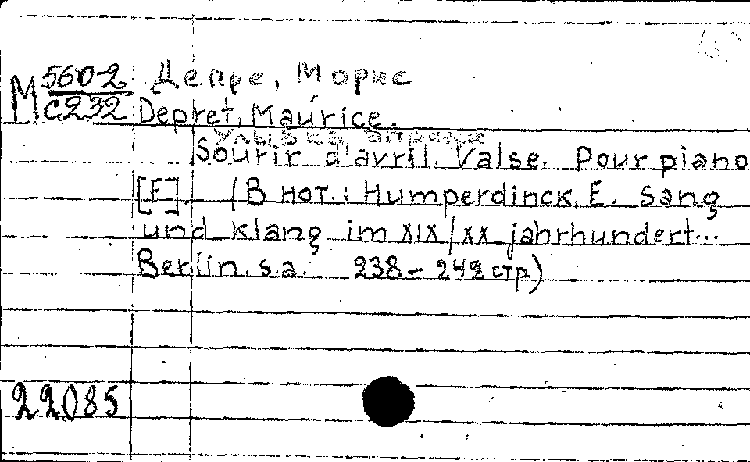 М 560-2 Депре, Морис
с232 Depret, Maurice.
Улыбка апреля
Sourir d'avril. Valse. Pour piano
[F]. (В нот.: Humperdinck, E. Sang
und klang im XIX/XX jahrhundert...
Berlin, s.a. 238-242 стр)
22085